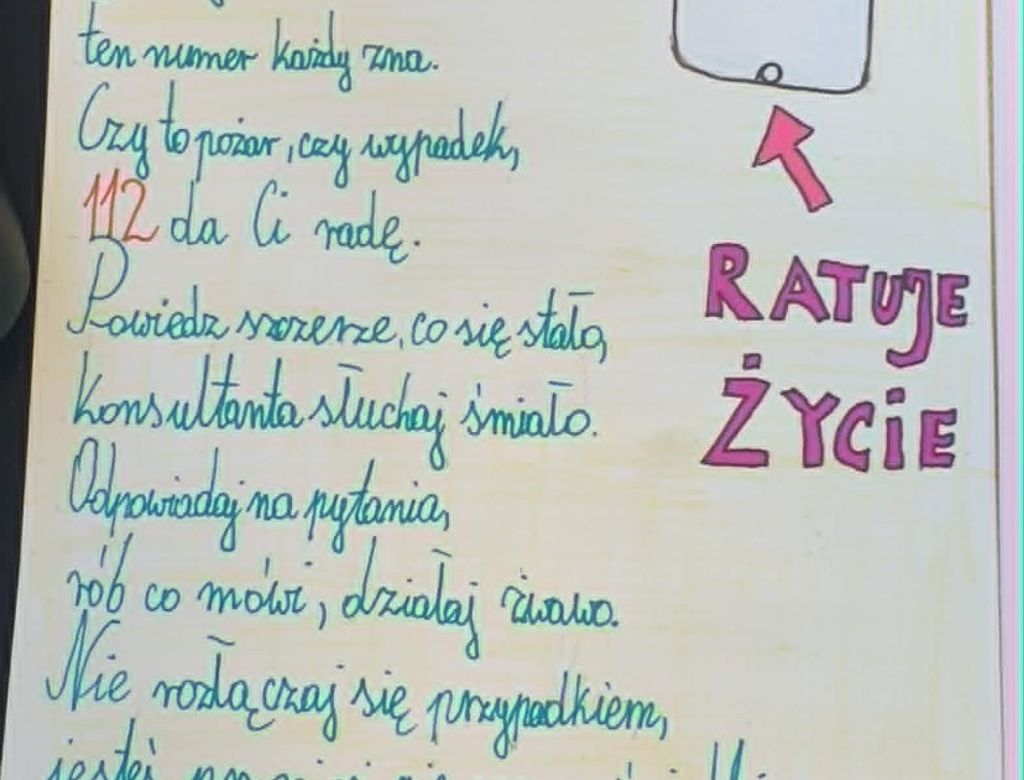 ten numer każdy zna.
Czy to pożar, czy wypadek,
112 da Ci radę.
Powiedz szczerze, co się stało,
konsultanta słuchaj śmiało.
Odpowiadaj na pytania,
rób co mówi, działaj żwawo.
Nie rozłączaj się przypadkiem,
jesteś
RATUJE
ŻYCIE